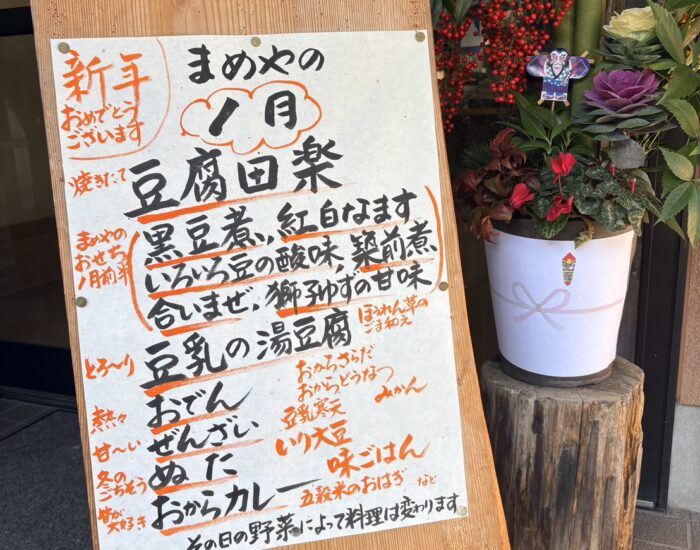 新年
おめでとう
ございます
まめやの
1月
焼きたて
豆腐田楽
まめやの
おせち
1月前半
黒豆煮,紅白なます
いろいろ豆の酸味,築前煮
合いまぜ,獅子ゆずの甘味
ほうれん草の
ごま和え
とろ〜り
豆乳の湯豆腐
おからさらだ
おからどうなつ
みかん
豆乳寒天
熱々
おでん
いり大豆
甘〜い
ぜんざい
味ごはん
冬の
ごちそう
ぬた
五穀米のおはぎ
など
皆が
大好き
おからカレー
その日の野菜によって料理は変わります